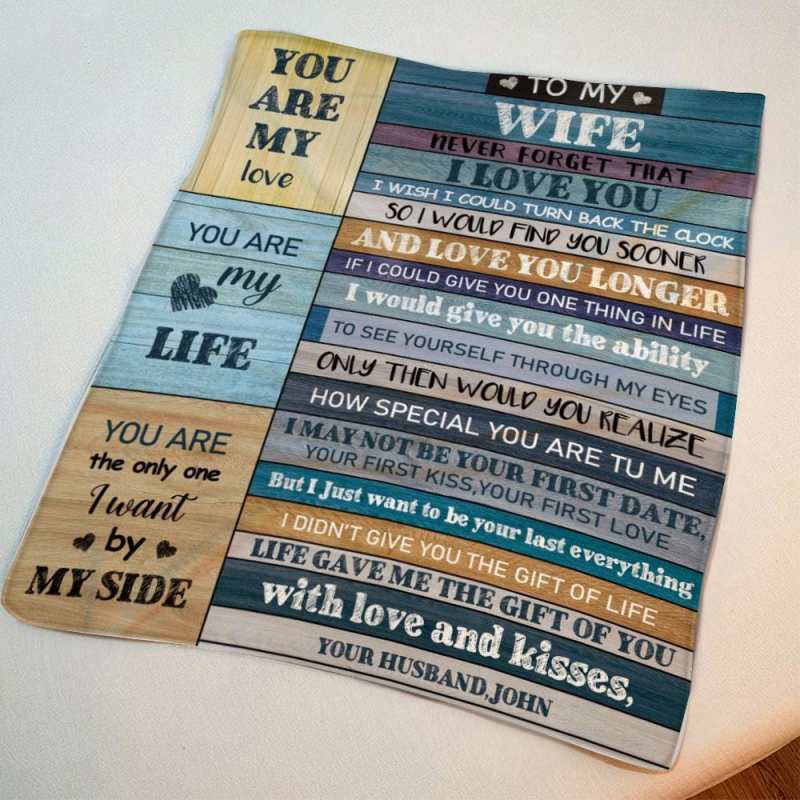 YOU
ARE
MY
love
YOU ARE
my
LIFE
YOU ARE
the only one
I want
by
MY SIDE
TO MY
WIFE
NEVER FORGET THAT
I LOVE YOU
I WISH I COULD TURN BACK THE CLOCK
SO I WOULD FIND YOU SOONER
AND LOVE YOU LONGER
IF I COULD GIVE YOU ONE THING IN LIFE
I would give you the ability
TO SEE YOURSELF THROUGH MY EYES
ONLY THEN WOULD YOU REALIZE
HOW SPECIAL YOU ARE TU ME
I MAY NOT BE YOUR FIRST DATE,
YOUR FIRST KISS,YOUR FIRST LOVE
But I Just want to be your last everything
I DIDN'T GIVE YOU THE GIFT OF LIFE
LIFE GAVE ME THE GIFT OF YOU
with love and kisses,
YOUR HUSBAND,JOHN